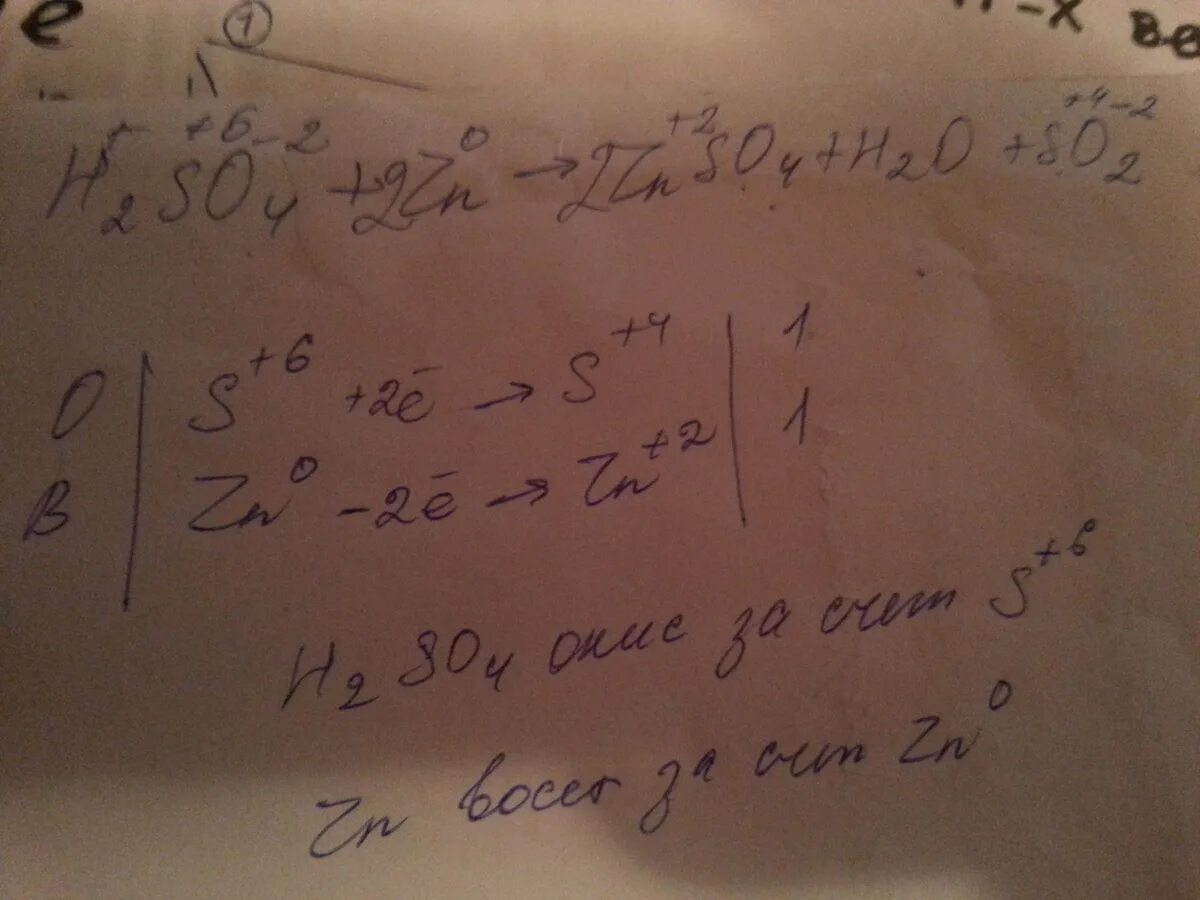 е ① п-х ве
H₂⁺S⁺⁶O₄⁻² + 2Zn⁰ → 2Zn⁺²SO₄ + H₂O + S⁺⁴O₂⁻²
О | S⁺⁶ +2ē → S⁺⁴ | 1
В | Zn⁰ -2ē → Zn⁺² | 1
H₂SO₄ окис за счет S⁺⁶
Zn восст за счет Zn⁰